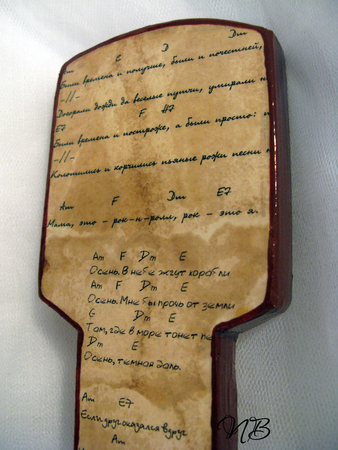 Am C D Dm
Были времена и получше, были и почестней,
-//-
Догорали дожди да веселые пушки, умирали
E7 F H7
Были времена и построже, а были просто:
-//-
Колотились и корчились пьяные рожи песни
Am F Dm E7
Мама, это – рок-н-ролл, рок – это я.
Am F Dm E
Осень. В небе жгут корабли
Am F Dm E
Осень. Мне бы прочь от земли
G Dm E
Там, где в море тонет пе
Dm E
Осень, темная даль.
Am E7
Если друг оказался вдруг
Am
NB